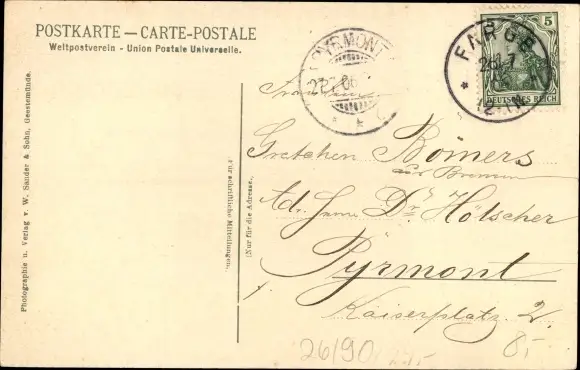 POSTKARTE — CARTE-POSTALE
Weltpostverein - Union Postale Universelle.
Photographie u. Verlag v. W. Sander & Sohn, Geestemünde.
Für schriftliche Mitteilungen.
(Nur für die Adresse.)
PYRMONT
FARGE
5
DEUTSCHES REICH
Fräulein
Gretchen Bomers
aus Bremen
Adr. Herrn Dr. Hölscher
Pyrmont
Kaiserplatz 2.
26/90
8,-